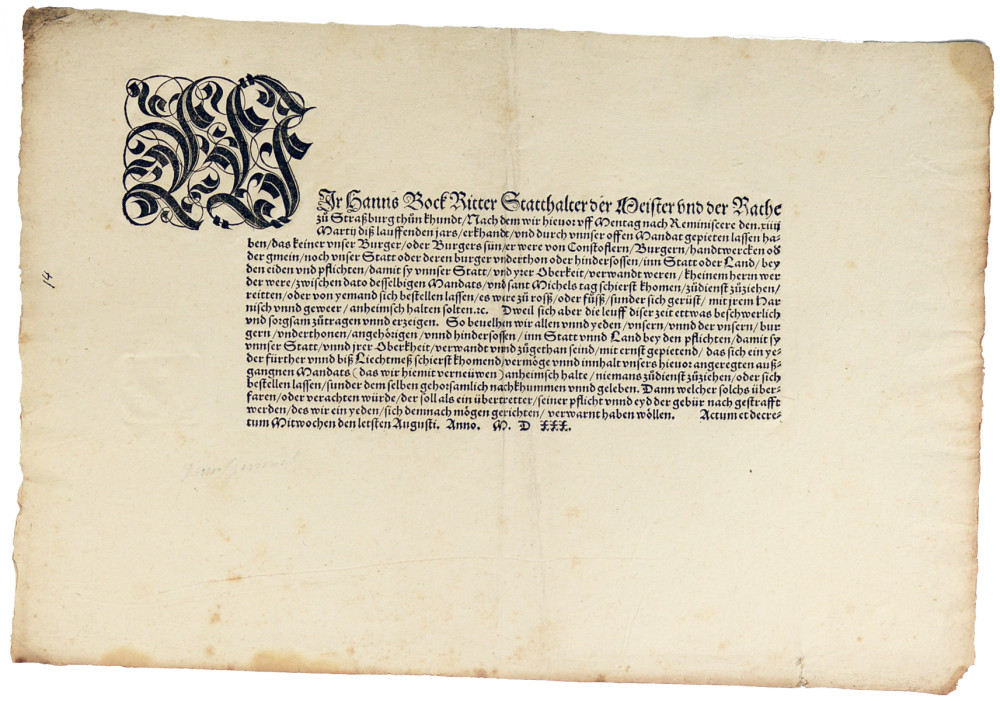 WIr Hanns Bock Ritter Statthalter der Meister vnd der Rathe
zů Straßburg thůn khundt/Nach dem wir hieuor vff Mentag nach Reminiscere den.xiiij
Martij diß lauffenden jars/erkhandt/vnd durch vnnser offen Mandat gepieten lassen ha-
ben/das keiner vnser Burger/oder Burgers sün/er were von Constoflern/Burgern/handtwercken od
der gmein/noch vnser Statt oder deren burger vnderthon oder hindersossen/inn Statt oder Land/bey
den eiden vnd pflichten/damit sy vnnser Statt/vnd yrer Oberkeit/verwandt weren/kheinem herrn wer
der were/zwischen dato desselbigen Mandats/vnd sant Michels tag schierst khomen/zůdienst zůziehen/
reitten/oder von yemand sich bestellen lassen/es wire zů roß/oder fůß/sunder sich gerüst/mit jrem Har
nisch vnnd geweer/anheimsch halten solten.ꝛc. Dweil sich aber die leuff diser zeit ettwas beschwerlich
vnd sorgsam zůtragen vnnd erzeigen. So beuelhen wir allen vnnd yeden/vnsern/vnnd der vnsern/bur
gern/vnderthonen/angehörigen/vnnd hindersossen/inn Statt vnnd Land bey den pflichten/damit sy
vnnser Statt/vnnd jrer Oberkheit/verwandt vnnd zůgethan seind/mit ernst gepietend/das sich ein ye-
der fürther vnnd biß Liechtmeß schierst khomend/vermöge vnnd innhalt vnsers hieuor angeregten auß-
gangnen Mandats (das wir hiemit verneüwen) anheimsch halte/niemans zůdienst zůziehen/oder sich
bestellen lassen/sunder dem selben gehorsamlich nachkhummen vnnd geleben. Dann welcher solchs über-
faren/oder verachten würde/der soll als ein übertretter/seiner pflicht vnnd eyd der gebür nach gestrafft
werden/des wir ein yeden/sich demnach mögen gerichten/verwarnt haben wöllen. Actum et decre-
tum Mitwochen den letsten Augusti. Anno. M. D XXX.
14